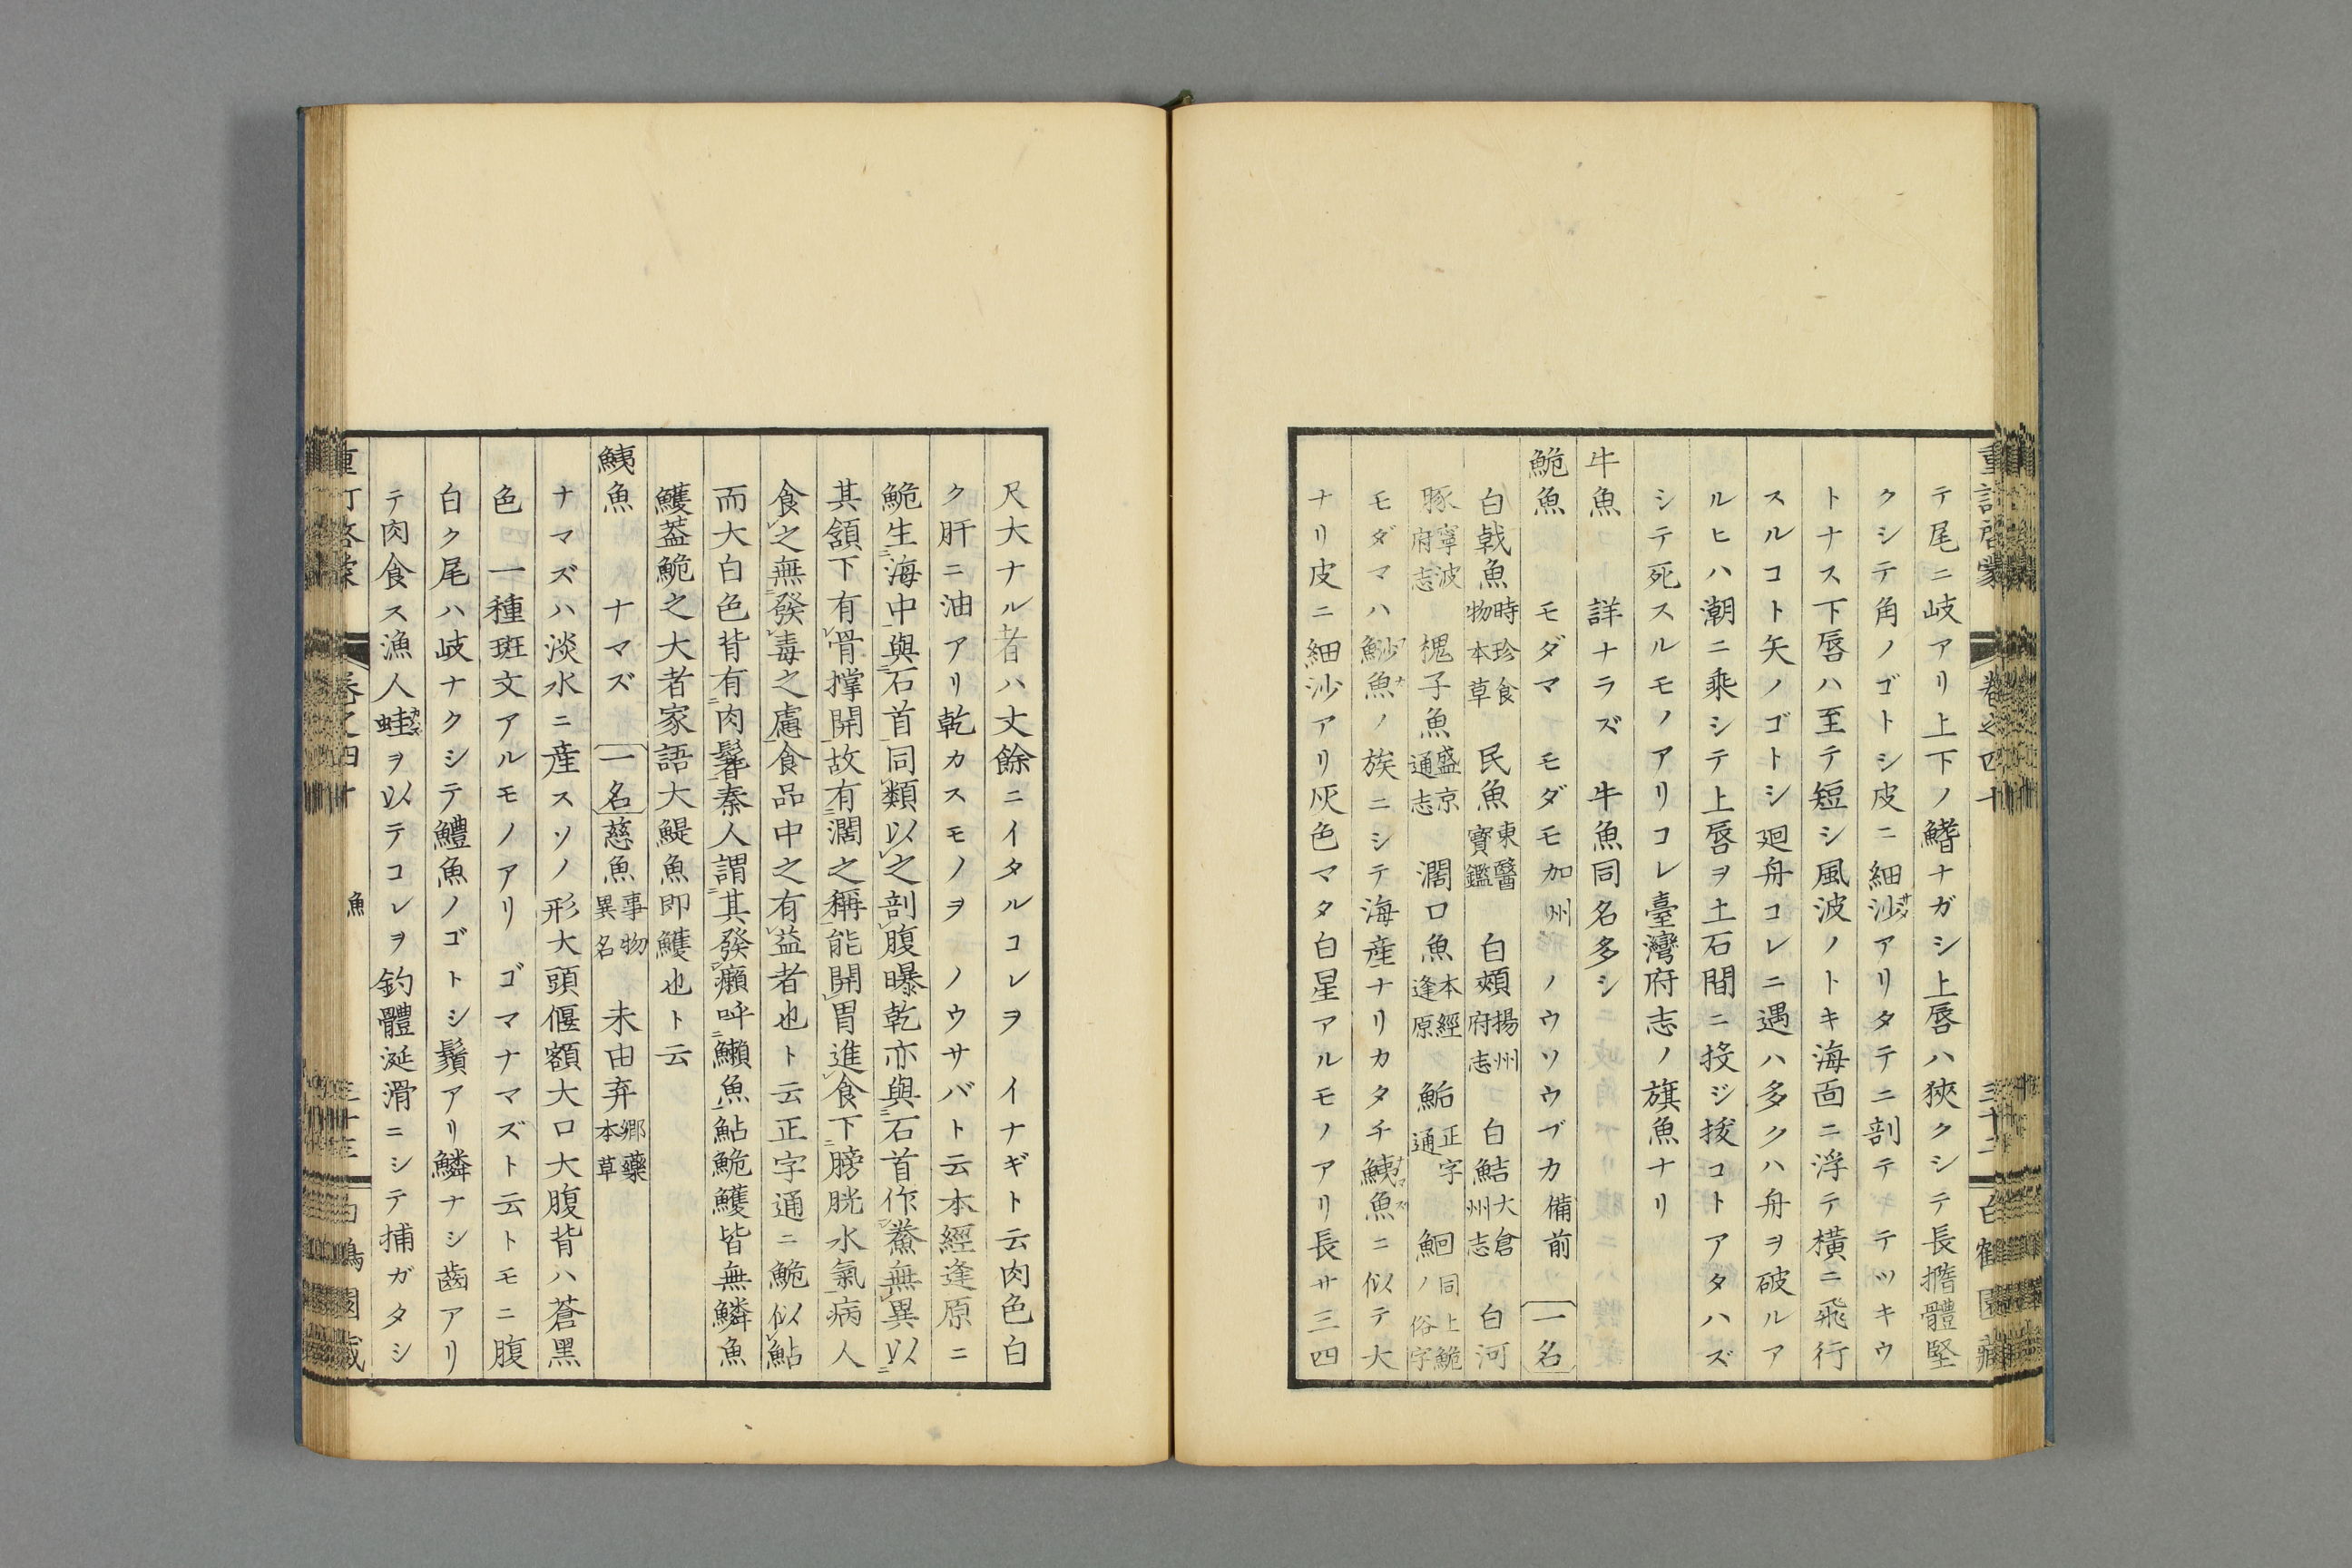 重訂啓蒙 卷之四十 三十二 白鶴園藏
テ尾ニ岐アリ上下ノ鰭ナガシ上唇ハ狹クシテ長擔體堅
クシテ角ノゴトシ皮ニ細沙アリタテニ剖テギテツキウ
トナス下唇ハ至テ短シ風波ノトキ海面ニ浮テ橫ニ飛行
スルコト矢ノゴトシ廻舟コレニ遇ハ多クハ舟ヲ破ルア
ルヒハ潮ニ乘シテ上唇ヲ土石間ニ挍ジ拔コトアタハズ
シテ死スルモノアリコレ臺灣府志ノ旗魚ナリ
牛魚 詳ナラズ 牛魚同名多シ
鮠魚 モダマ モダモ加州 ノウソウブカ備前 一名
白戟魚時珍食物本草 民魚東醫寶鑑 白頰揚州府志 白鮚大倉州志 白河
豚寧波府志 槐子魚盛京通志 濶口魚本經逢原 鮐正字通 鮰同上鮠ノ俗字
モダマハ魦魚ノ族ニシテ海産ナリカタチ鮧魚ニ似テ大
ナリ皮ニ細沙アリ灰色マタ白星アルモノアリ長サ三四
尺大ナル者ハ丈餘ニイタルコレヲ イナギト云肉色白
ク肝ニ油アリ乾カスモノヲ ノウサバト云本經逢原ニ
鮠生海中與石首同類以之剖腹曝乾亦與石首作鯗無異以
其頷下有骨撑開故有濶之稱能開胃進食下膀胱水氣病人
食之無發毒之慮食品中之有益者也ト云正字通ニ鮠似鮎
而大白色背有肉鬐秦人謂其發癩呼鱖魚鮎鮠鱯皆無鱗魚
鱯葢鮠之大者家語大鯷魚即鱯也ト云
鮧魚 ナマズ 一名慈魚事物異名 未由弃鄉藥本草
ナマズハ淡水ニ産スソノ形大頭偃額大口大腹背ハ蒼黑
色 一種斑文アルモノアリ ゴマナマズト云トモニ腹
白ク尾ハ岐ナクシテ鱧魚ノゴトシ鬚アリ鱗ナシ齒アリ
テ肉食ス漁人蛙ヲ以テコレヲ釣體涎滑ニシテ捕ガタシ
重訂啓蒙 卷之四十 魚 三十三 白鶴園藏